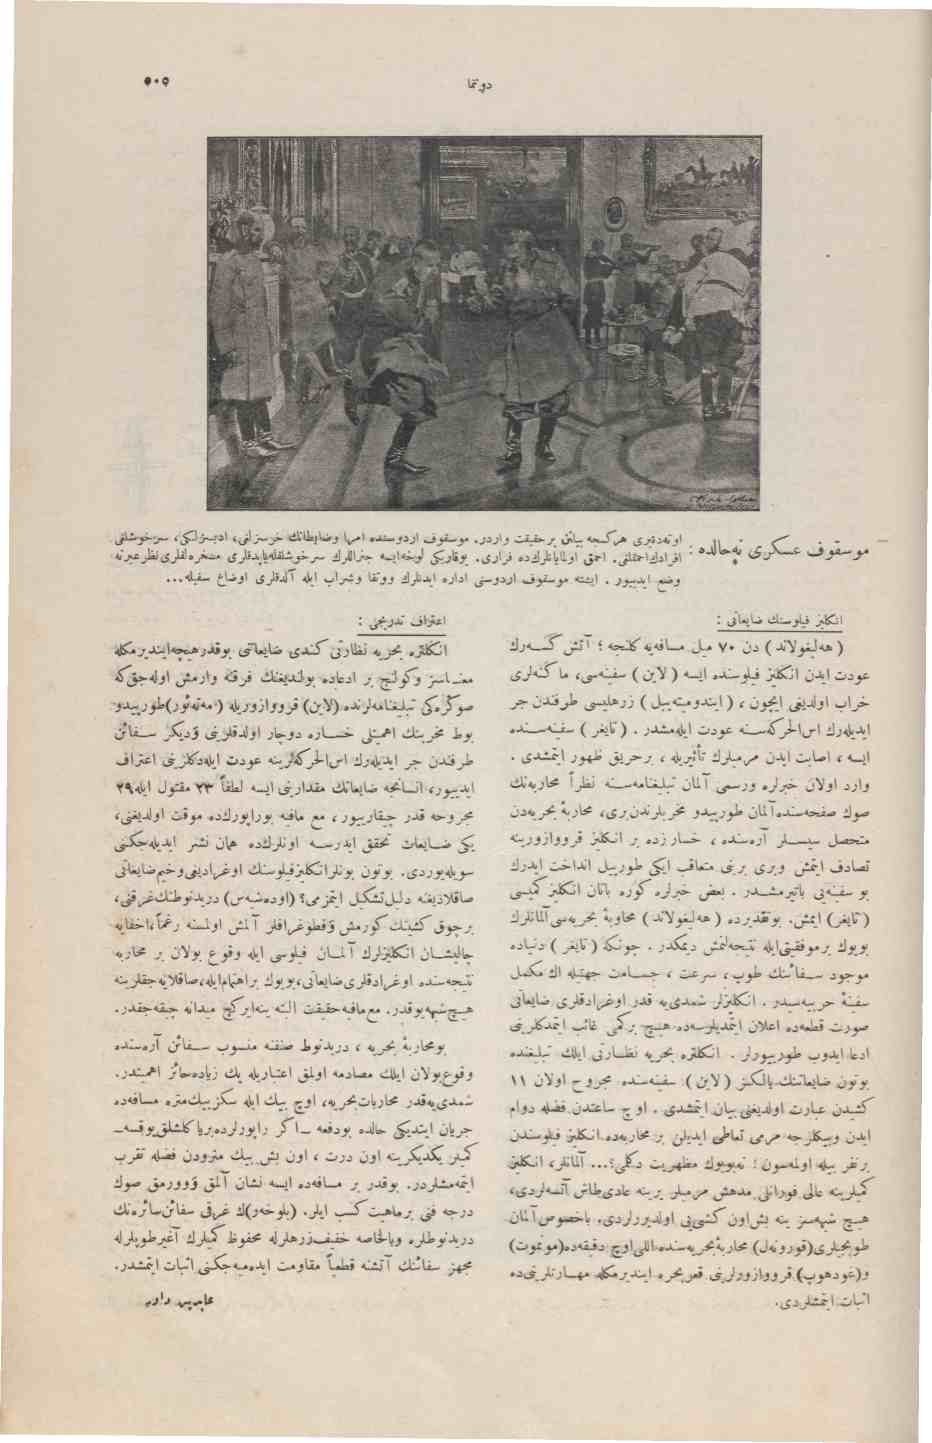 دوننما
٥٠٥
موسقوف عسكری نه‌حالده :
اوته‌دنبری هركسجه بیلنن بر حقیقت واردر. موسقوف اردوسنده امرا وضابطانك خرسزلغی، ادبسزلكی، سرخوشلغی
افرادك احمقلغی. احمق اولمایانلرك‌ده فراری. یوقاریكی لوحه‌ایسه جنراللرك سرخوشلقله‌یاپدقلری مسخره‌لقلری نظر عبرته
وضع ایدییور . ایشته موسقوف اردوسنی اداره ایدنلرك ووتقا وشراب ایله آلدقلری اوضاع سفیله...
انكلیز فیلوسنك ضایعاتی :
( هه‌لیغولاند ) دن ٧٠ میل مسافه‌یه كلنجه ؛ آتش كسه‌رك
عودت ایدن انكلیز فیلوسنده ایسه ( لاین ) سفینه‌سی، ماكنه‌لری
خراب اولدیغی ایچون ، ( ایندومیته‌یبل ) زرهلیسی طرفندن جر
ایدیله‌رك اس‌الحركه‌سنه عودت ایله‌مشدر . ( تایغر ) سفینه‌سنده
ایسه ، اصابت ایدن مرمیلرك تأثیریله ، بر حریق ظهور ایتمشدی .
وارد اولان خبرلره ورسمی آلمان تبلیغنامه‌سنه نظراً محاربه‌نك
صوك صفحه‌سنده آلمان طورپیدو مخربلرندن بری، محاربهٔ بحریه‌دن
متحصل سیسلر آره‌سنده ، خسارزده بر انكلیز قرووازورینه
تصادف ایتمش وبری برینی متعاقب ایكی طورپیل انداخت ایدرك
بو سفینه‌یی باتیرمشدر . بعض خبرلره كوره باتان انكلیز كمیسی
( تایغر ) ایمش. بوتقدیرده ( هه‌لیغولاند ) محاربهٔ بحریه‌سی آلمانلرك
بویوك بر موفقیتی‌ایله نتیجه‌لنمش دیمكدر . چونكه ( تایغر ) دنیاده
موجود سفائنك طوپ ، سرعت ، جسامت جهتیله اك مكمل
سفینهٔ حربیه‌سیدر . انكلیزلر شمدی‌یه قدر اوغرادقلری ضایعاتی
صورت قطعه‌ده اعلان ایتمدیلرسه‌ده هیچ بر كمی غائب ایتمدكلرینی
ادعا ایدوب طورییورلر . انكلتره بحریه نظارتی ایلك تبلیغنده
بوتون ضایعاتنك یالكز ( لاین ) سفینه‌سنده مجروح اولان ١١
كشیدن عبارت اولدیغنی بیان ایتمشدی . اوچ ساعتدن فضله دوام
ایدن وبیكلرجه مرمی تعاطی ایدیلن بر محاربه‌ده انكلیز فیلوسندن
بر نفر بیله اولمه‌سون ؛ نه‌بویوك مظهریت دكلمی؟... آلمانلر، انكلیز
كمیلرینه عالی فورانلی مدهش مرمیلر یرینه عادی‌طاش آتسه‌لردی،
هیچ شبهه‌سز ینه بش‌اون كشی‌یی اولدیررلردی. باخصوص آلمان
طوپجیلری(قورونه‌ل) محاربهٔ بحریه‌سنده‌اللی‌اوچ دقیقه‌ده(مونموت)
و(غودهوپ) قرووازورلرینی قعر بحره ایندیرمكله مهارتلرینی‌ده
اثبات ایتمشلردی.
اعتراف تدریجی :
انكلتره بحریه نظارتی كندی ضایعاتنی بوقدرهیچه‌ایندیرمكله
معناسز وكولنج بر ادعاده بولندیغنك فرقنه وارمش اوله‌جق‌كه
صوكره‌كی تبلیغنامه‌لرنده (لاین) قرووازوریله ( مه‌ته‌ئور) طورپیدو
بوط مخربنك اهمیتلی خساره دوچار اولدقلرینی ودیكر سفائن
طرفندن جر ایدیله‌رك اس‌الحركه‌لرینه عودت ایله‌دكلرینی اعتراف
ایدییور، انسانجه ضایعاتك مقدارینی ایسه لطفاً ٢٣ مقتول ایله٢٩
مجروحه قدر چیقارییور ، مع مافیه بوراپورك‌ده موقت اولدیغنی،
یكی ضایعات تحقق ایدرسه اونلرك‌ده همان نشر ایدیله‌جكنی
سویله‌یوردی. بوتون بونلرانكلیزفیلوسنك اوغرادیغی‌وخیم‌ضایعاتی
صاقلادیغنه دلیل‌تشكیل ایتمزمی؟ (اوده‌شیه‌س) دریدنوطنك‌غرقنی،
بر چوق كشینك كورمش وفطوغرافلر آلمش اولمسنه رغماً،اخفایه
چالیشان انكلیزلرك آلمان فیلوسی ایله وقوع بولان بر محاربه
نتیجه‌سنده اوغرادقلری‌ضایعاتی،بویوك براهتمام‌ایله،صاقلایه‌جقلرینه
هیچ‌شبهه‌یوقدر. مع‌مافیه‌حقیقت البته ینه‌ایركچ میدانه چیقه‌جقدر.
بو محاربهٔ بحریه ، دریدنوط صنفنه منسوب سفائن آره‌سنده
وقوع‌بولان ایلك مصادمه اولمق اعتباریله پك زیاده‌حائز اهمیتدر.
شمدی‌یه‌قدر محاربات‌بحریه، اوچ بیك ایله سكزبیك‌متره مسافه‌ده
جریان ایتدیكی حالده بودفعه ـ اكر راپورلرده‌بریاكلشلق‌یوقسه ـ
كمیلر یكدیكرینه اون درت ، اون بش بیك مترودن فضله تقرب
ایتمه‌مشلردر. بوقدر بر مسافه‌ده ایسه نشان آلمق وورمق صوك
درجه فنی برماهیت كسب ایلر. (بلوخه‌ر)ك غرقی سفائن‌سائره‌نك
دریدنوطلره وبالخاصه خفیف‌زرهلرله محفوظ كمیلرك آغیرطوپلرله
مجهز سفائنك آتشنه قطعیاً مقاومت ایده‌میه‌جكنی اثبات ایتمشدر.